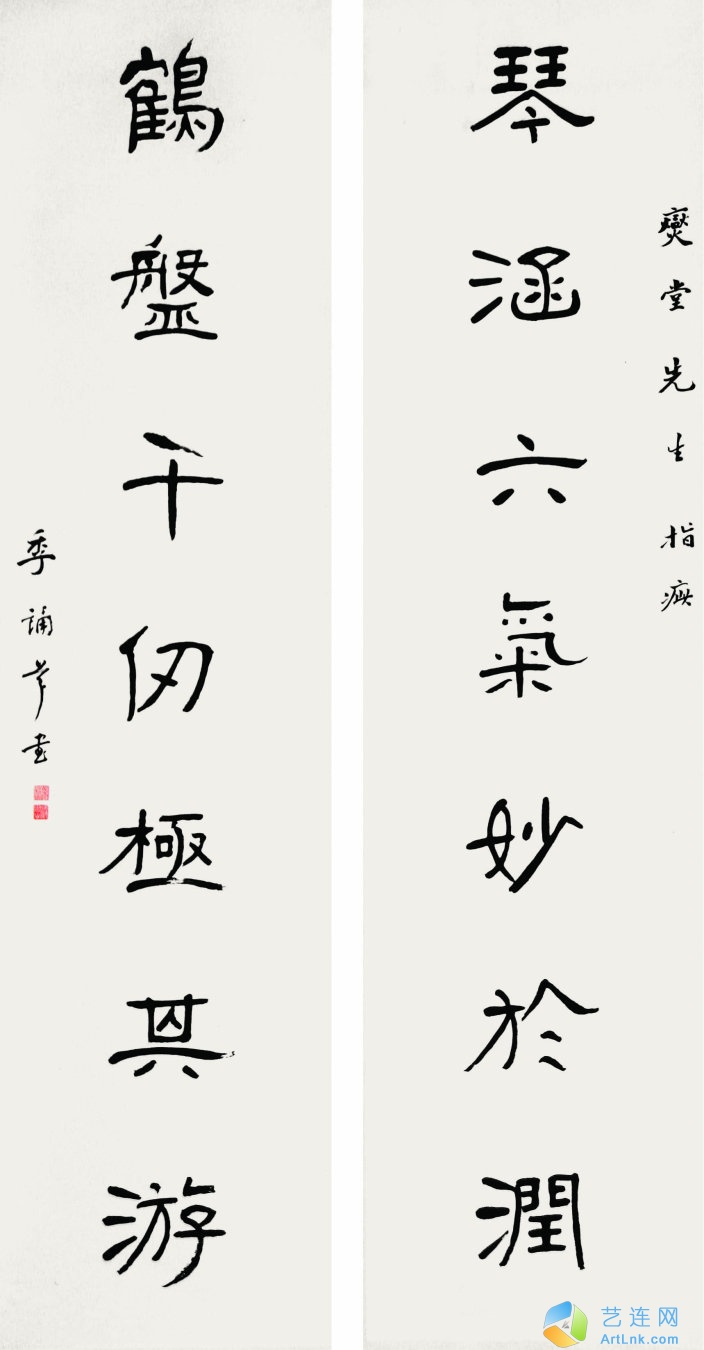 燮堂先生指疵
琴涵六氣妙於潤
鶴盤千仞極其游
季誦芬書
艺连网
ArtLnk.com